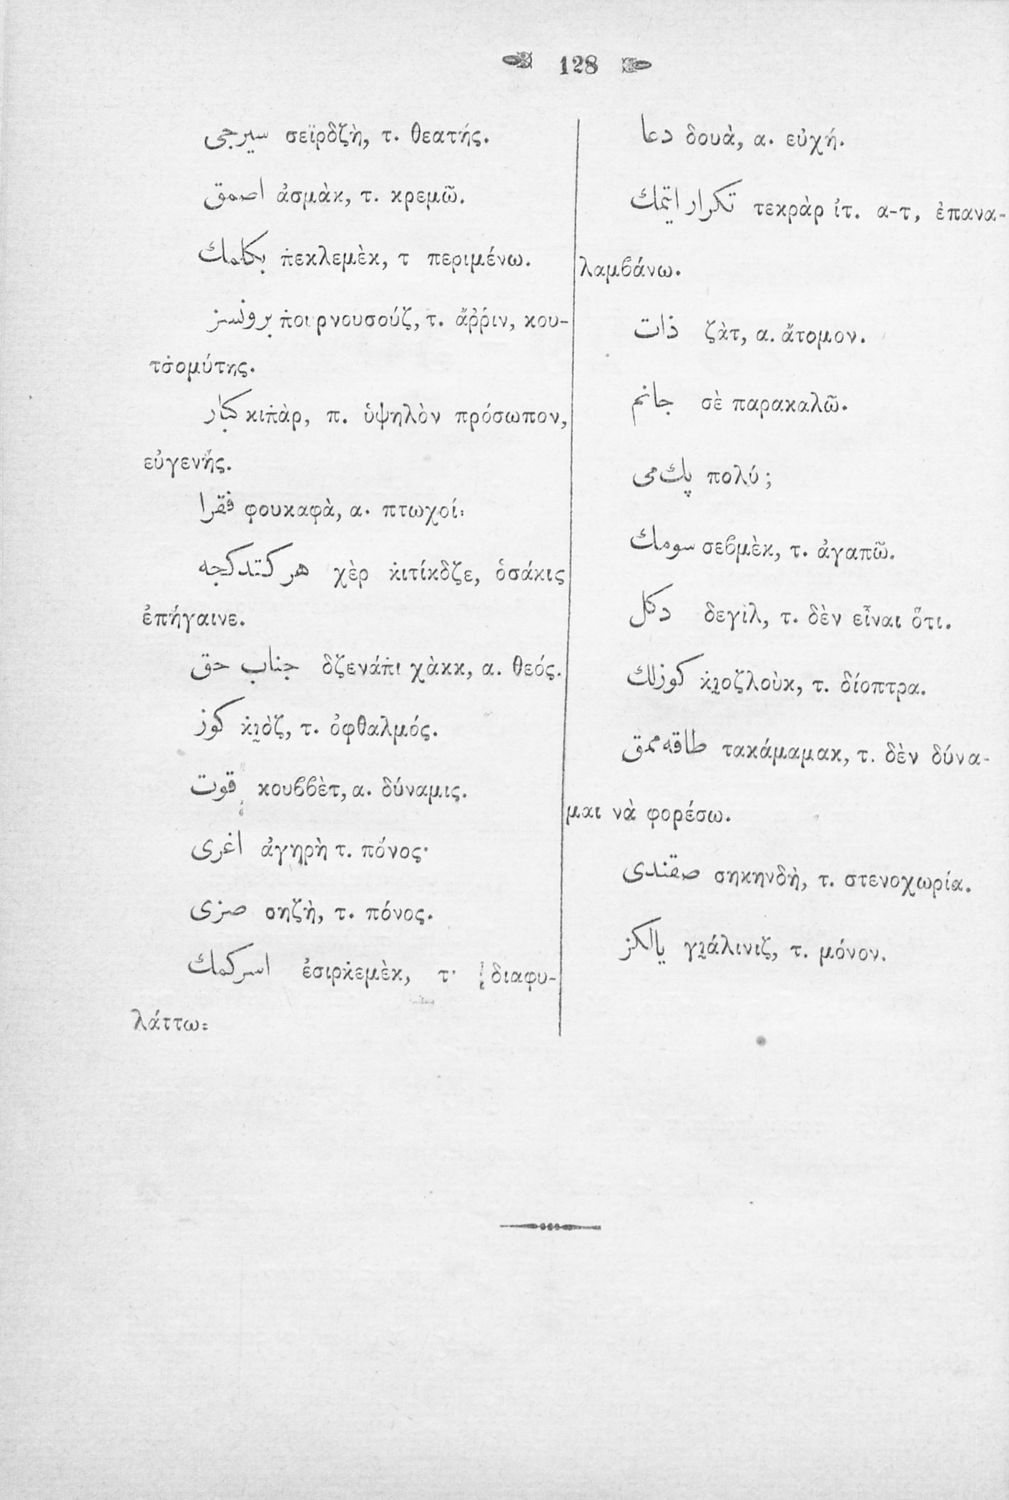 128
سيرجى σεϊρδζὴ, τ. θεατής.
اصمق ἀσμὰκ, τ. κρεμῶ.
بكلمك π̇εκλεμὲκ, τ περιμένω.
برونسز π̇ουρνουσούζ, τ. ἄῤῥιν, κου-
τσ̇ομύτης.
كبار κιπ̇ὰρ, π. ὑψηλὸν πρόσωπον,
εὐγενής.
فقرا φουκαφὰ, α. πτωχοί.
هر كتدكجه χὲρ κ̇ιτίκδζε, ὁσάκις
ἐπήγαινε.
جناب حق δζενάπ̇ι χὰκκ, α. θεός.
كوز κ̇ιὸζ, τ. ὀφθαλμός.
قوت κουββὲτ, α. δύναμις.
اغرى ἀγηρὴ τ. πόνος·
صزى σηζὴ, τ. πόνος.
اسركمك ἐσιρκ̇εμὲκ, τ· διαφυ-
λάττω:
دعا δουὰ, α. εὐχή.
تكرار ايتمك τεκρὰρ ἰτ. α-τ, ἐπανα-
λαμβάνω.
ذات ζὰτ, α. ἄτομον.
جانم σὲ παρακαλῶ.
پك مى πολύ;
سومك σεβμὲκ, τ. ἀγαπῶ.
دكل δεγὶλ, τ. δὲν εἶναι ὅτι.
كوزلك κ̇ιοζλοὺκ, τ. δίοπτρα.
طاقه ممق τακάμαμακ, τ. δὲν δύνα-
μαι νὰ φορέσω.
صقندى σηκηνδὴ, τ. στενοχωρία.
يالكز γιάλινιζ, τ. μόνον.